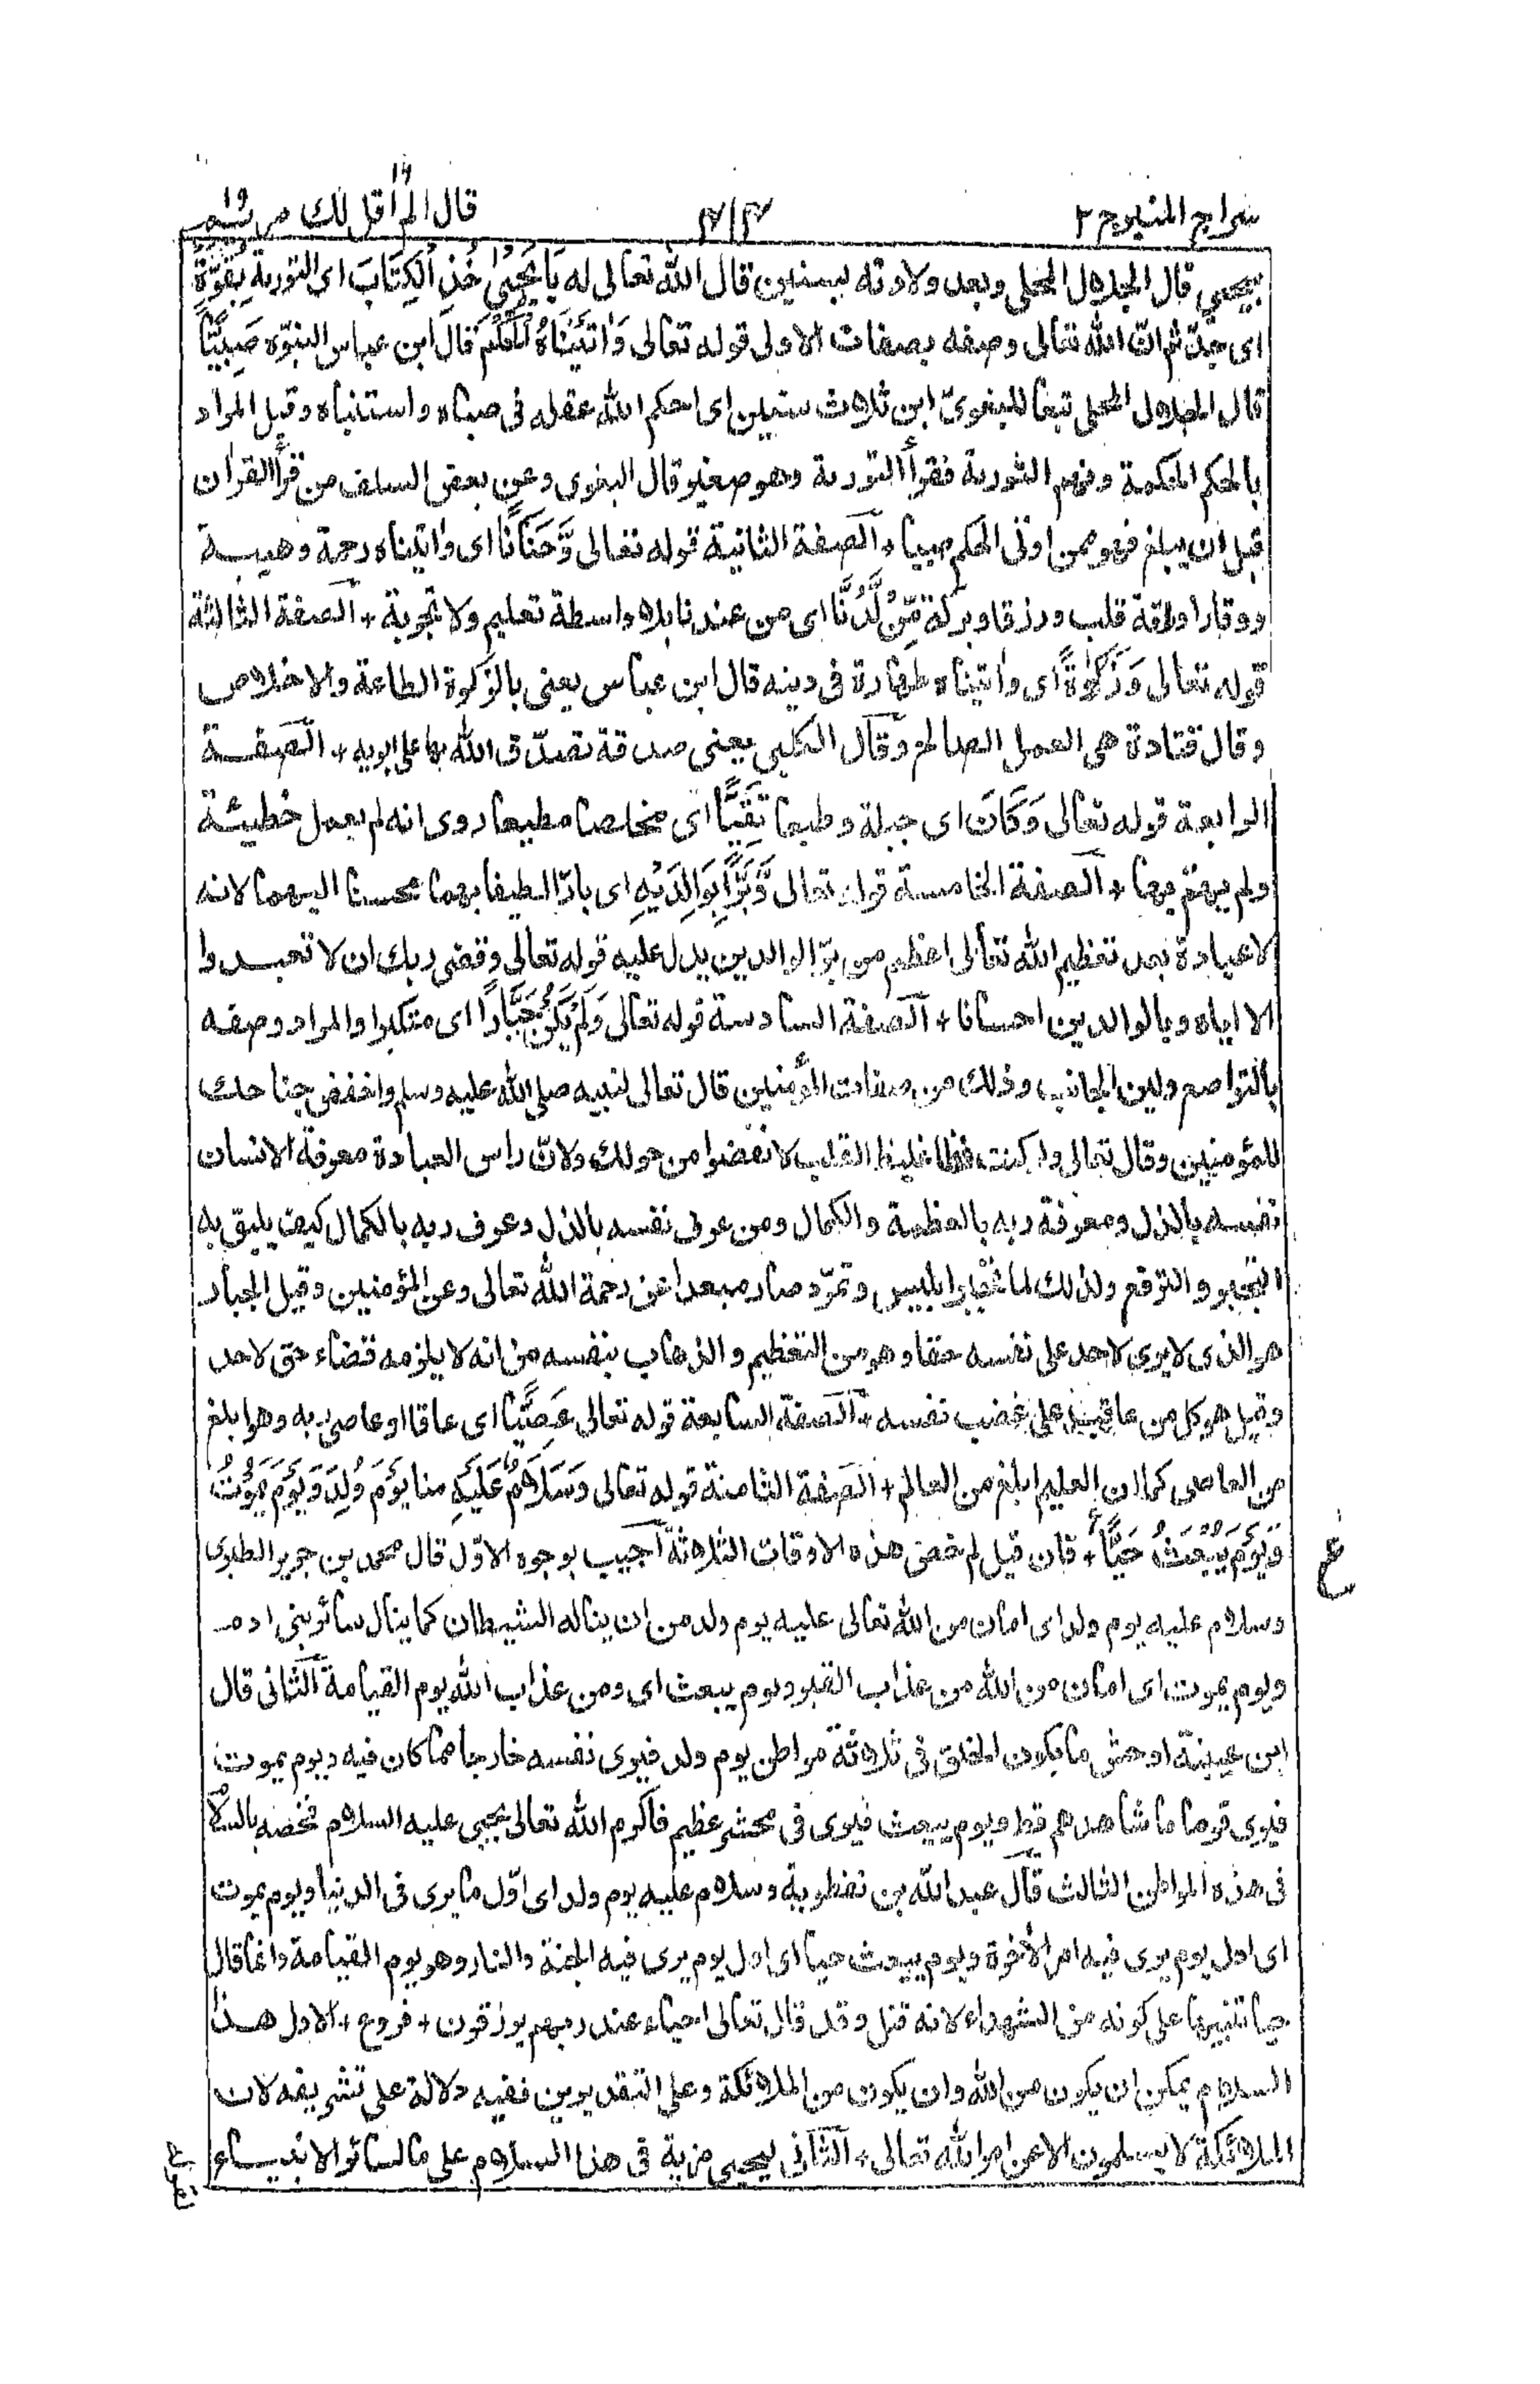 سراج المنير ج ٢ ٤١٤ قال الم اقل لك ١٦ مريم ١٩
بيحيى قال الجلال المحلى وبعد ولادته بسنين قال الله تعالى له يَايَحْيٰى خُذِ الْكِتَابَ اى التورية بِقُوَّةٍ
اى جدّ ثم انّ الله تعالى وصفه بصفات الاولى قوله تعالى وَاٰتَيْنَاهُ الْحُكْمَ قال ابن عباس النبوّه صَبِيًّا
قال الجلال المحلى تبعا للبغوىّ ابن ثلاث سنين اى احكم الله عقله فى صباه واستنباه وقيل المراد
بالحكم الحكمة وفهم التورية فقرأ التورية وهو صغير قال البغوى وعن بعض السلف من قرأ القراٰن
قبل ان يبلغ فهو ممن اوتى الحكم صبيا + الصفة الثانية قوله تعالى وَّحَنَانًا اى واٰتيناه رحمة وهيبة
ووقارا ورقة قلب ورزقا وبركة مِّنْ لَّدُنَّا اى من عندنا بلا واسطة تعليم ولا تجربة + الصفة الثالثة
قوله تعالى وَزَكٰوةً اى واٰتيناه طهارة فى دينه قال ابن عباس يعنى بالزكوة الطاعة والاخلاص
وقال قتادة هى العمل الصالح وقال الكلبى يعنى صدقة تصدّق الله بها على ابويه + الصفة
الرابعة قوله تعالى وَكَانَ اى جبلة وطبعا تَقِيًّا اى مخلصا مطيعا روى انه لم يعمل خطيئة
ولم يهمّ بها + الصفة الخامسة قوله تعالى وَّبَرًّا بِوَالِدَيْهِ اى بارّا لطيفا بهما محسنا اليهما لانه
لا عبادة بعد تعظيم الله تعالى اعظم من برّ الوالدين يدل عليه قوله تعالى وقضى ربك ان لا تعبدوا
الا اياه وبالوالدين احسانا + الصفة السادسة قوله تعالى وَلَمْ يَكُنْ جَبَّارًا اى متكبرا والمراد وصفه
بالتواضع ولين الجانب وذلك من صفات المؤمنين قال تعالى لنبيه صلى الله عليه وسلم واخفض جناحك
للمؤمنين وقال تعالى ولو كنت فظا غليظ القلب لانفضوا من حولك ولانّ راس العبادة معرفة الانسان
نفسه بالذل ومعرفة ربه بالعظمة والكمال ومن عرف نفسه بالذل وعرف ربه بالكمال كيف يليق به
التجبر والترفع ولذلك لما تجبر ابليس وتمرّد صار مبعدا عن رحمة الله تعالى وعن المؤمنين وقيل الجبار
هو الذى لا يرى لاحد على نفسه حقا وهو من التعظيم والذهاب بنفسه من انه لا يلزمه قضاء حق لاحد
وقيل هو كل من عاقب على غضب نفسه + الصفة السابعة قوله تعالى عَصِيًّا اى عاقا او عاصى ربه وهو ابلغ
من العاصى كما ان العليم ابلغ من العالم + الصفة الثامنة قوله تعالى وَسَلَامٌ عَلَيْهِ منا يَوْمَ وُلِدَ وَيَوْمَ يَمُوْتُ
وَيَوْمَ يُبْعَثُ حَيًّا + فان قيل لم خص هذه الاوقات الثلاثة اجيب بوجوه الاوّل قال محمد بن جرير الطبرى
وسلام عليه يوم ولد اى امان من الله تعالى عليه يوم ولد من ان يناله الشيطان كما ينال سائر بنى ادم
ويوم يموت اى امان من الله من عذاب القبر ويوم يبعث اى ومن عذاب الله يوم القيامة الثانى قال
ابن عيينة اوحش ما يكون الخلق فى ثلاثة مواطن يوم ولد فيرى نفسه خارجا مما كان فيه ويوم يموت
فيرى قوما ما شاهدهم قط ويوم يبعث فيرى فى محشر عظيم فاكرم الله تعالى يحيى عليه السلام فخصه بالسلام
فى هذه المواطن الثالث قال عبد الله بن نفطوية وسلام عليه يوم ولد اى اوّل ما يرى فى الدنيا ويوم يموت
اى اول يوم يرى فيه امر الاٰخرة ويوم يبعث حيا اى اول يوم يرى فيه الجنة والنار وهو يوم القيامة وانما قال
حيا تنبيها على كونه من الشهداء لانه قتل وقد قال تعالى احياء عند ربهم يرزقون + فروع + الاول هذا
السلام يمكن ان يكون من الله وان يكون من الملائكة وعلى التقديرين ففيه دلالة على تشريفه لان
الملائكة لا يسلمون الا عن امر الله تعالى + الثانى ليحيى مزية فى هذا السلام على ما لسائر الانبياء
ع